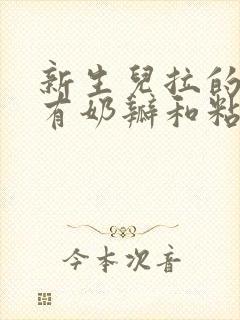 新生兒拉的
有奶瓣和粘
今本次音